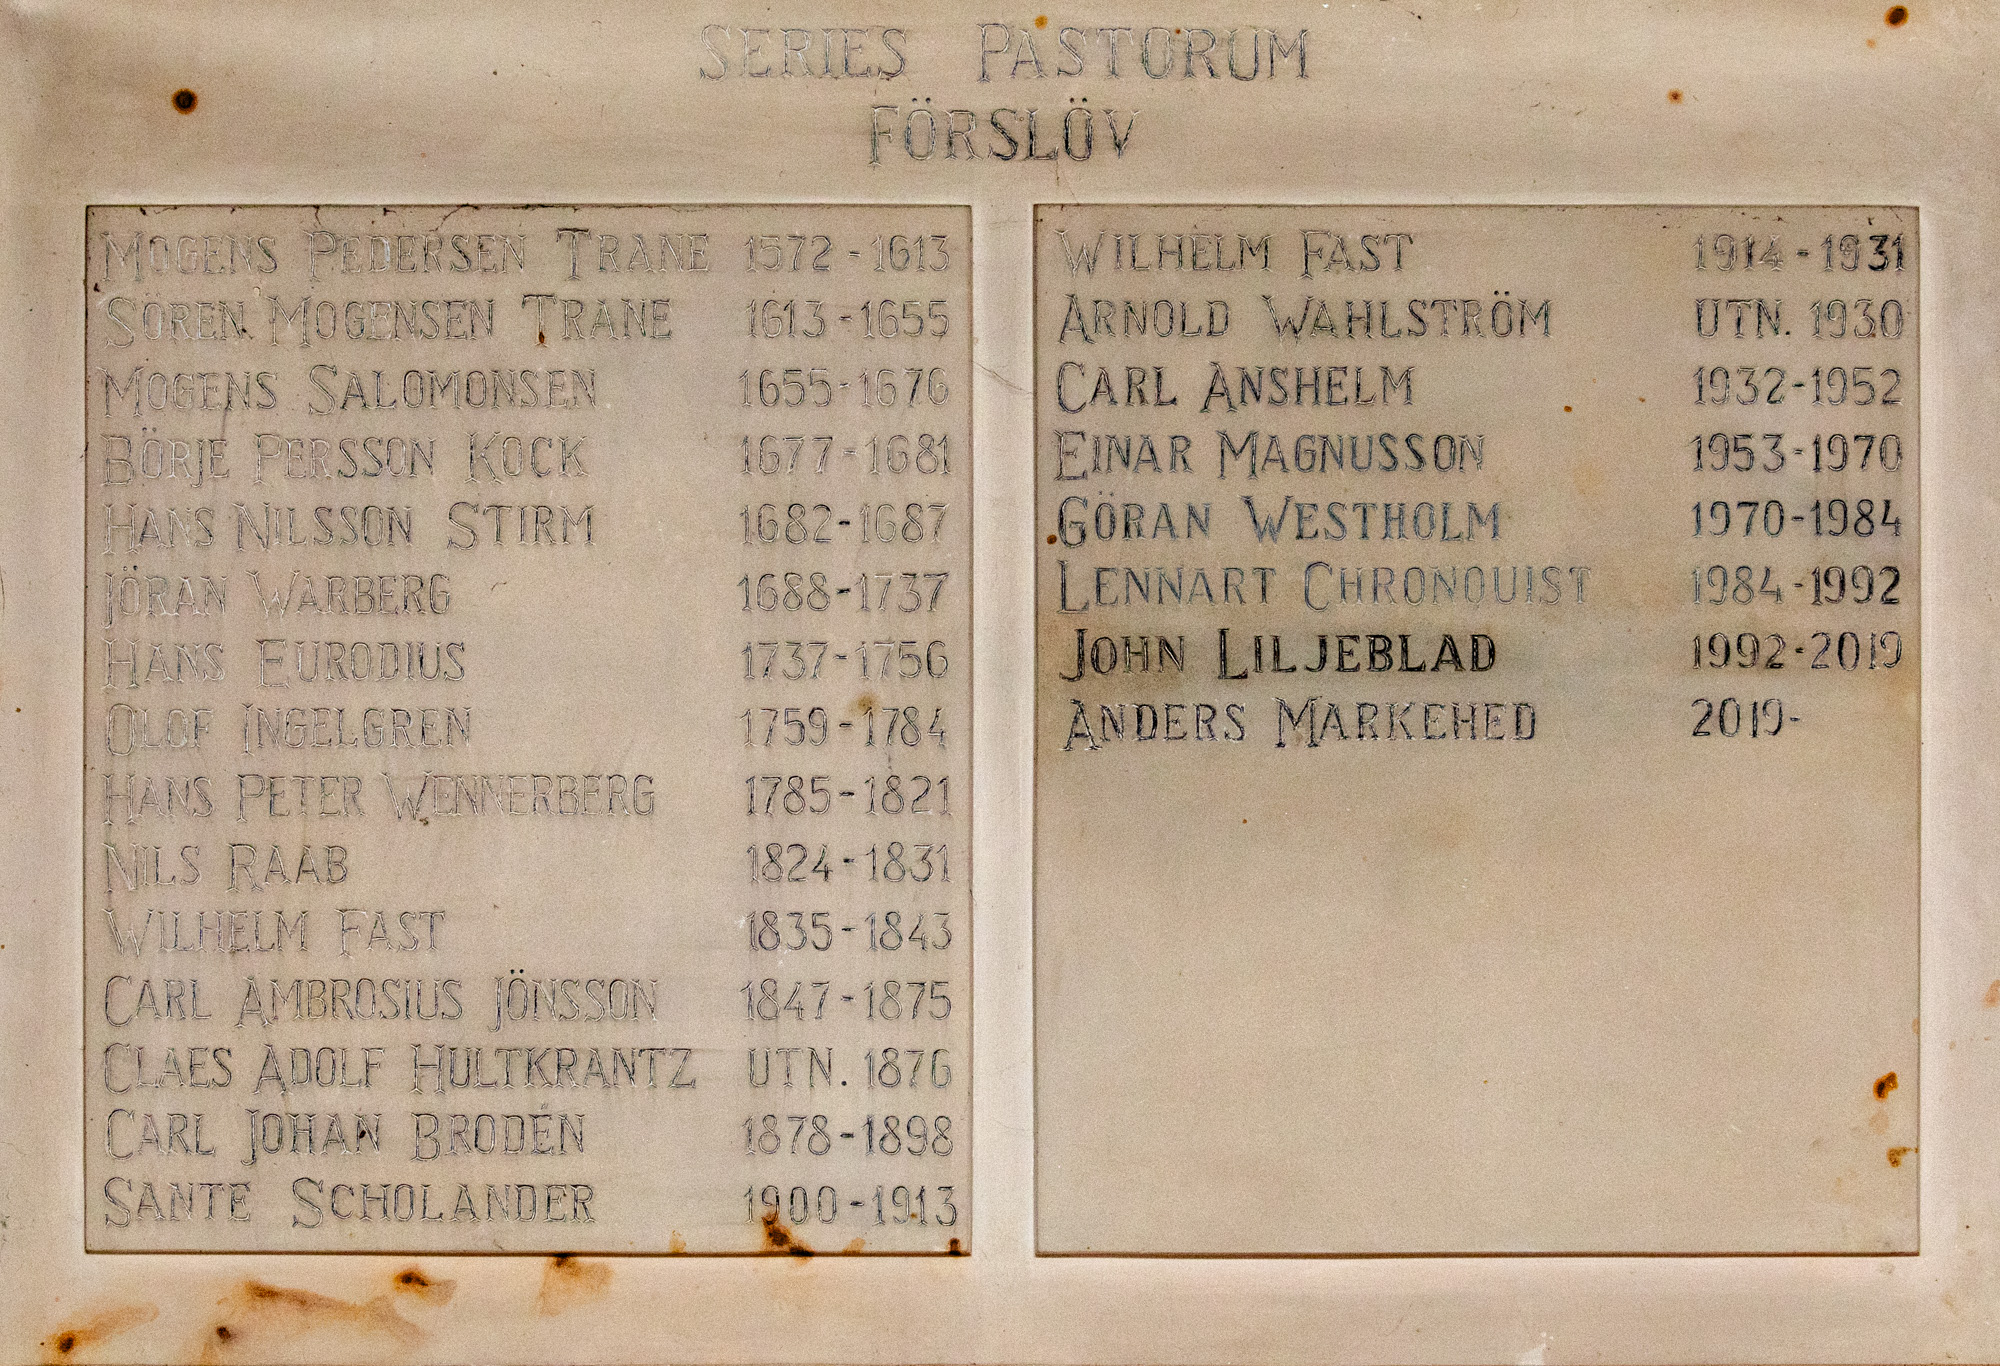 SERIES PASTORUM
FÖRSLÖV
MOGENS PEDERSEN TRANE 1572-1613
SÖREN MOGENSEN TRANE 1613-1655
MOGENS SALOMONSEN 1655-1676
BÖRJE PERSSON KOCK 1677-1681
HANS NILSSON STIRM 1682-1687
JÖRAN WARBERG 1688-1737
HANS EURODIUS 1737-1756
OLOF INGELGREN 1759-1784
HANS PETER WENNERBERG 1785-1821
NILS RAAB 1824-1831
WILHELM FAST 1835-1843
CARL AMBROSIUS JÖNSSON 1847-1875
CLAES ADOLF HULTKRANTZ UTN. 1876
CARL JOHAN BRODÉN 1878-1898
SANTE SCHOLANDER 1900-1913
WILHELM FAST 1914-1931
ARNOLD WAHLSTRÖM UTN. 1930
CARL ANSHELM 1932-1952
EINAR MAGNUSSON 1953-1970
GÖRAN WESTHOLM 1970-1984
LENNART CHRONQUIST 1984-1992
JOHN LILJEBLAD 1992-2019
ANDERS MARKEHED 2019-